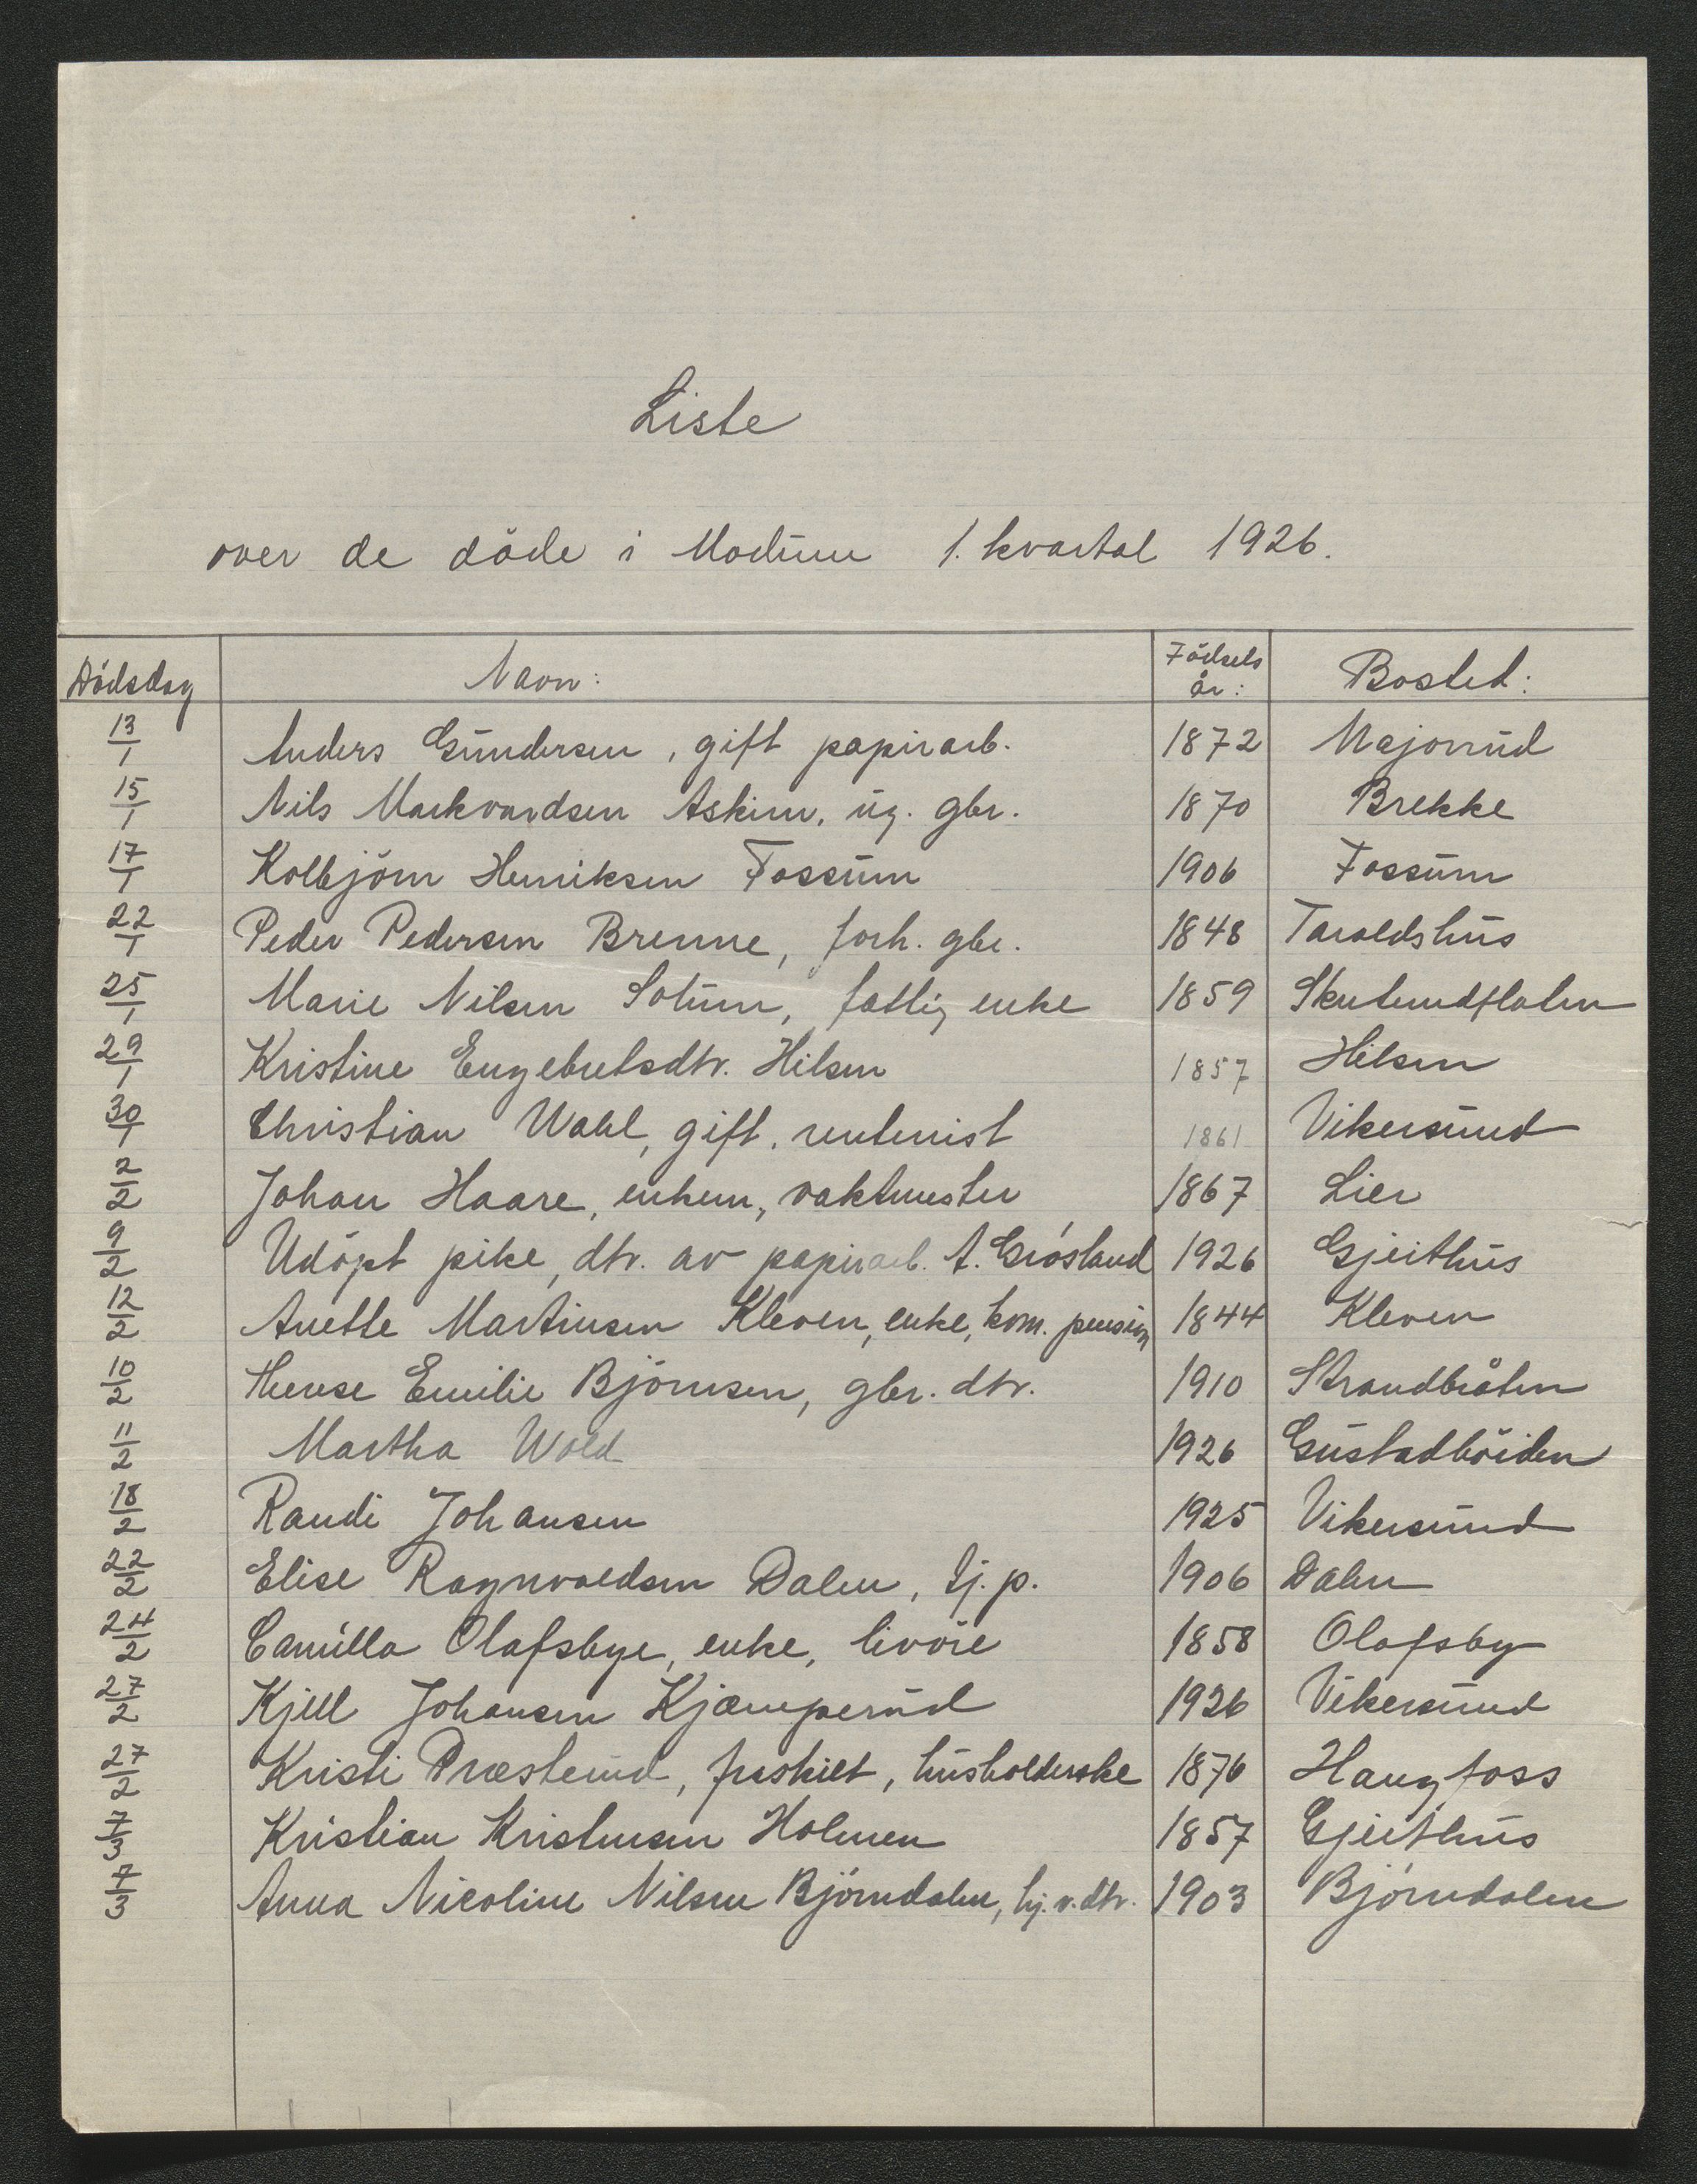 Liste
over de döde i Modum 1. kvartal 1926.
Dódsdag Navn: Födsels år: Bosted:
13/1 Anders Gundersen, gift papirarb. 1872 Majorrud
15/1 Nils Markvardsen Askim, ug. gbr. 1870 Brekke
17/1 Kolbjörn Henriksen Fossum 1906 Fossum
22/1 Peder Pedersen Brenne, forh. gbr. 1848 Taraldshus
25/1 Marie Nilsen Solum, fattig enke 1859 Skuterudflaten
29/1 Kristine Engebretsdtr. Hilsen 1857 Hilsen
30/1 Christian Wahl, gift, rentenist 1861 Vikersund
2/2 Johan Haare, enkem, vaktmester 1867 Lier
9/2 Udöpt pike, dtr. av papirarb. A. Grósland 1926 Gjeithus
12/2 Anette Martinsen Kleven, enke, kom. pension 1844 Kleven
10/2 Therese Emilie Björnsen, gbr. dtr. 1910 Strandbråten
11/2 Martha Wold 1926 Gustadhöiden
18/2 Randi Johansen 1925 Vikersund
22/2 Elise Ragnvaldsen Dalen, tj. p. 1906 Dalen
24/2 Camilla Olafsbye, enke, livöre 1858 Olafsby
27/2 Kjell Johansen Kjæmperud 1926 Vikersund
27/2 Kristi Præsterud, fraskilt, husholderske 1876 Haugfoss
7/3 Kristian Kristensen Holmen 1857 Gjeithus
7/3 Anna Nicoline Nilsen Björndalen, hj. v. dtr. 1903 Björndalen